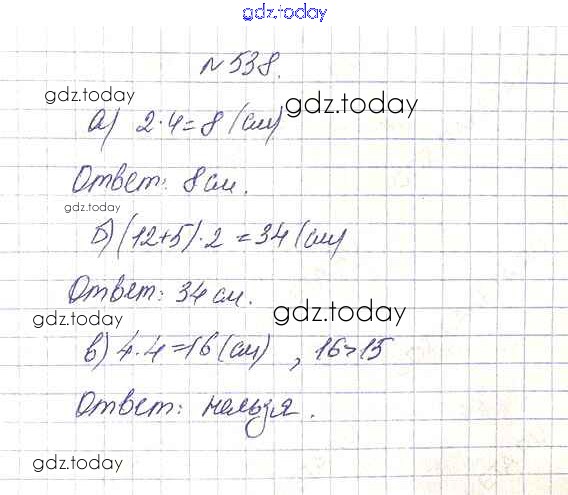 gdz.today
№538.
gdz.today
gdz.today
а) 2·4=8 (см)
Ответ: 8 см.
gdz.today
б) (12+5)·2=34 (см)
Ответ: 34 см.
gdz.today
gdz.today
в) 4·4=16 (см), 16>15
Ответ: нельзя.
gdz.today